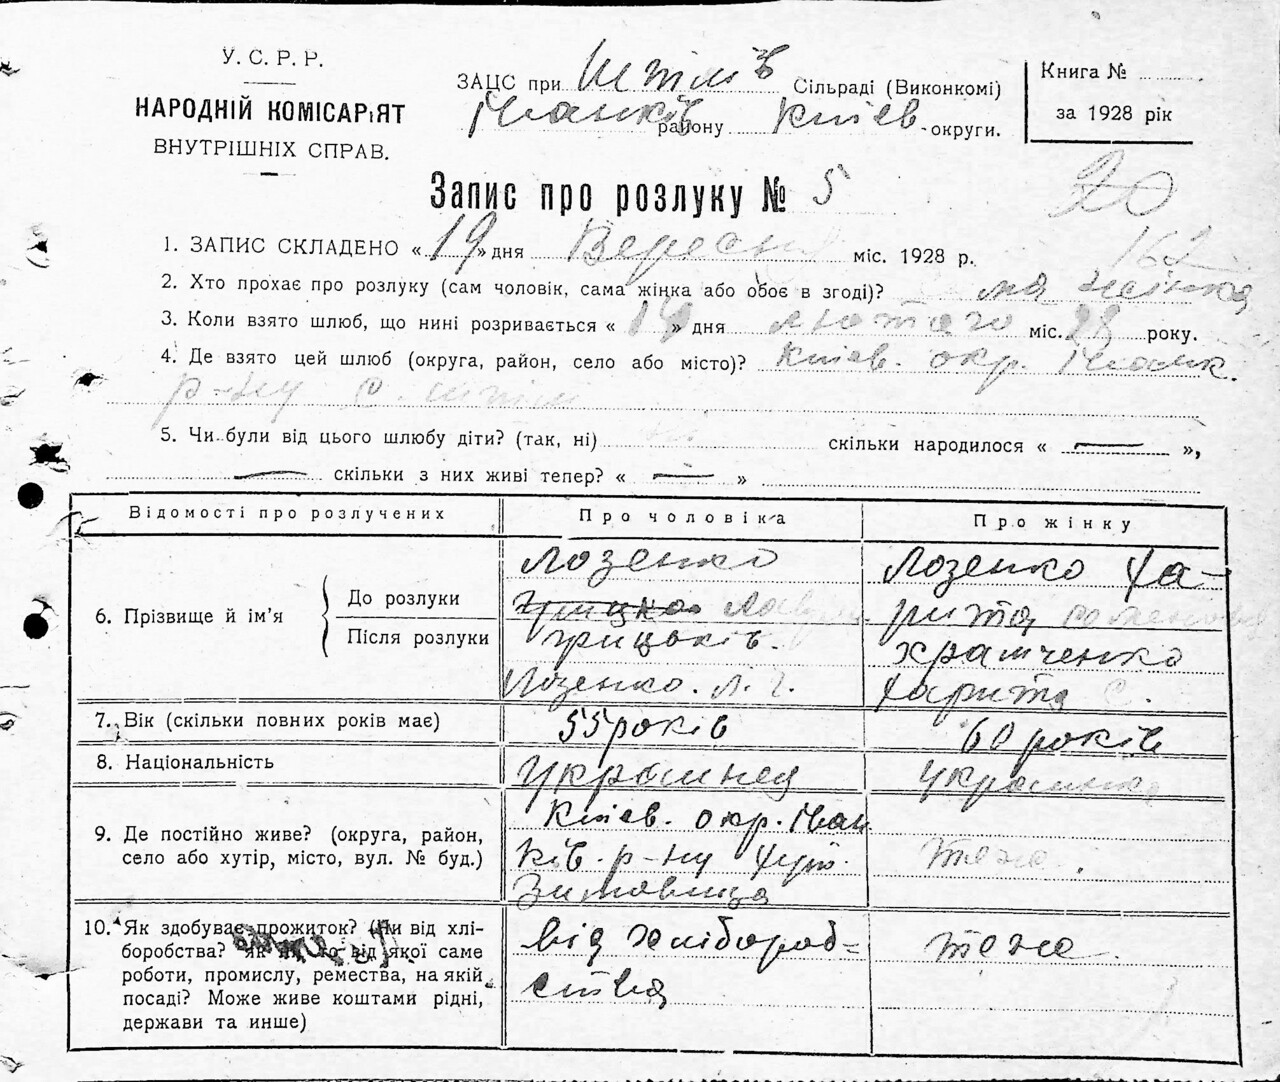 У. С. Р. Р.
НАРОДНІЙ КОМІСАРІЯТ
ВНУТРІШНІХ СПРАВ.
ЗАЦС при Сільраді (Виконкомі)
району Київ. округи.
Книга №
за 1928 рік
Запис про розлуку № 5
20
162
1. ЗАПИС СКЛАДЕНО «19» дня Вересня міс. 1928 р.
2. Хто прохає про розлуку (сам чоловік, сама жінка або обоє в згоді)? жінка
3. Коли взято шлюб, що нині розривається « » дня лютого міс. 28 року.
4. Де взято цей шлюб (округа, район, село або місто)? Київ. окр.
р-ну с.
5. Чи були від цього шлюбу діти? (так, ні) скільки народилося « — »,
— скільки з них живі тепер? « — »
Відомості про розлучених
Про чоловіка
Про жінку
6. Прізвище й ім'я
До розлуки
Після розлуки
Лозенко
Грицько
Грицьків.
Лозенко. Л. Г.
Лозенко Ха-
рита
Храмченко
Харита С.
7. Вік (скільки повних років має)
55 років
60 років
8. Національність
Українец
Українка
9. Де постійно живе? (округа, район,
село або хутір, місто, вул. № буд.)
Київ. окр. Іван
ків. р-ну хут.
теже.
10. Як здобуває прожиток? (Чи від хлі-
боробства? Як ні, то від якої саме
роботи, промислу, ремества, на якій
посаді? Може живе коштами рідні,
держави та инше)
від хлібороб-
ства
теже.